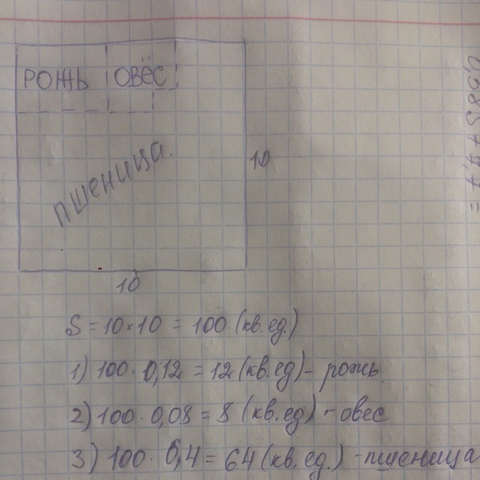 РОЖЬ ОВЁС
пшеница.
10
10
S = 10 × 10 = 100 (кв.ед.)
1) 100 · 0,12 = 12 (кв.ед) - рожь
2) 100 · 0,08 = 8 (кв.ед) - овес
3) 100 · 0,4 = 64 (кв.ед.) - пшеница